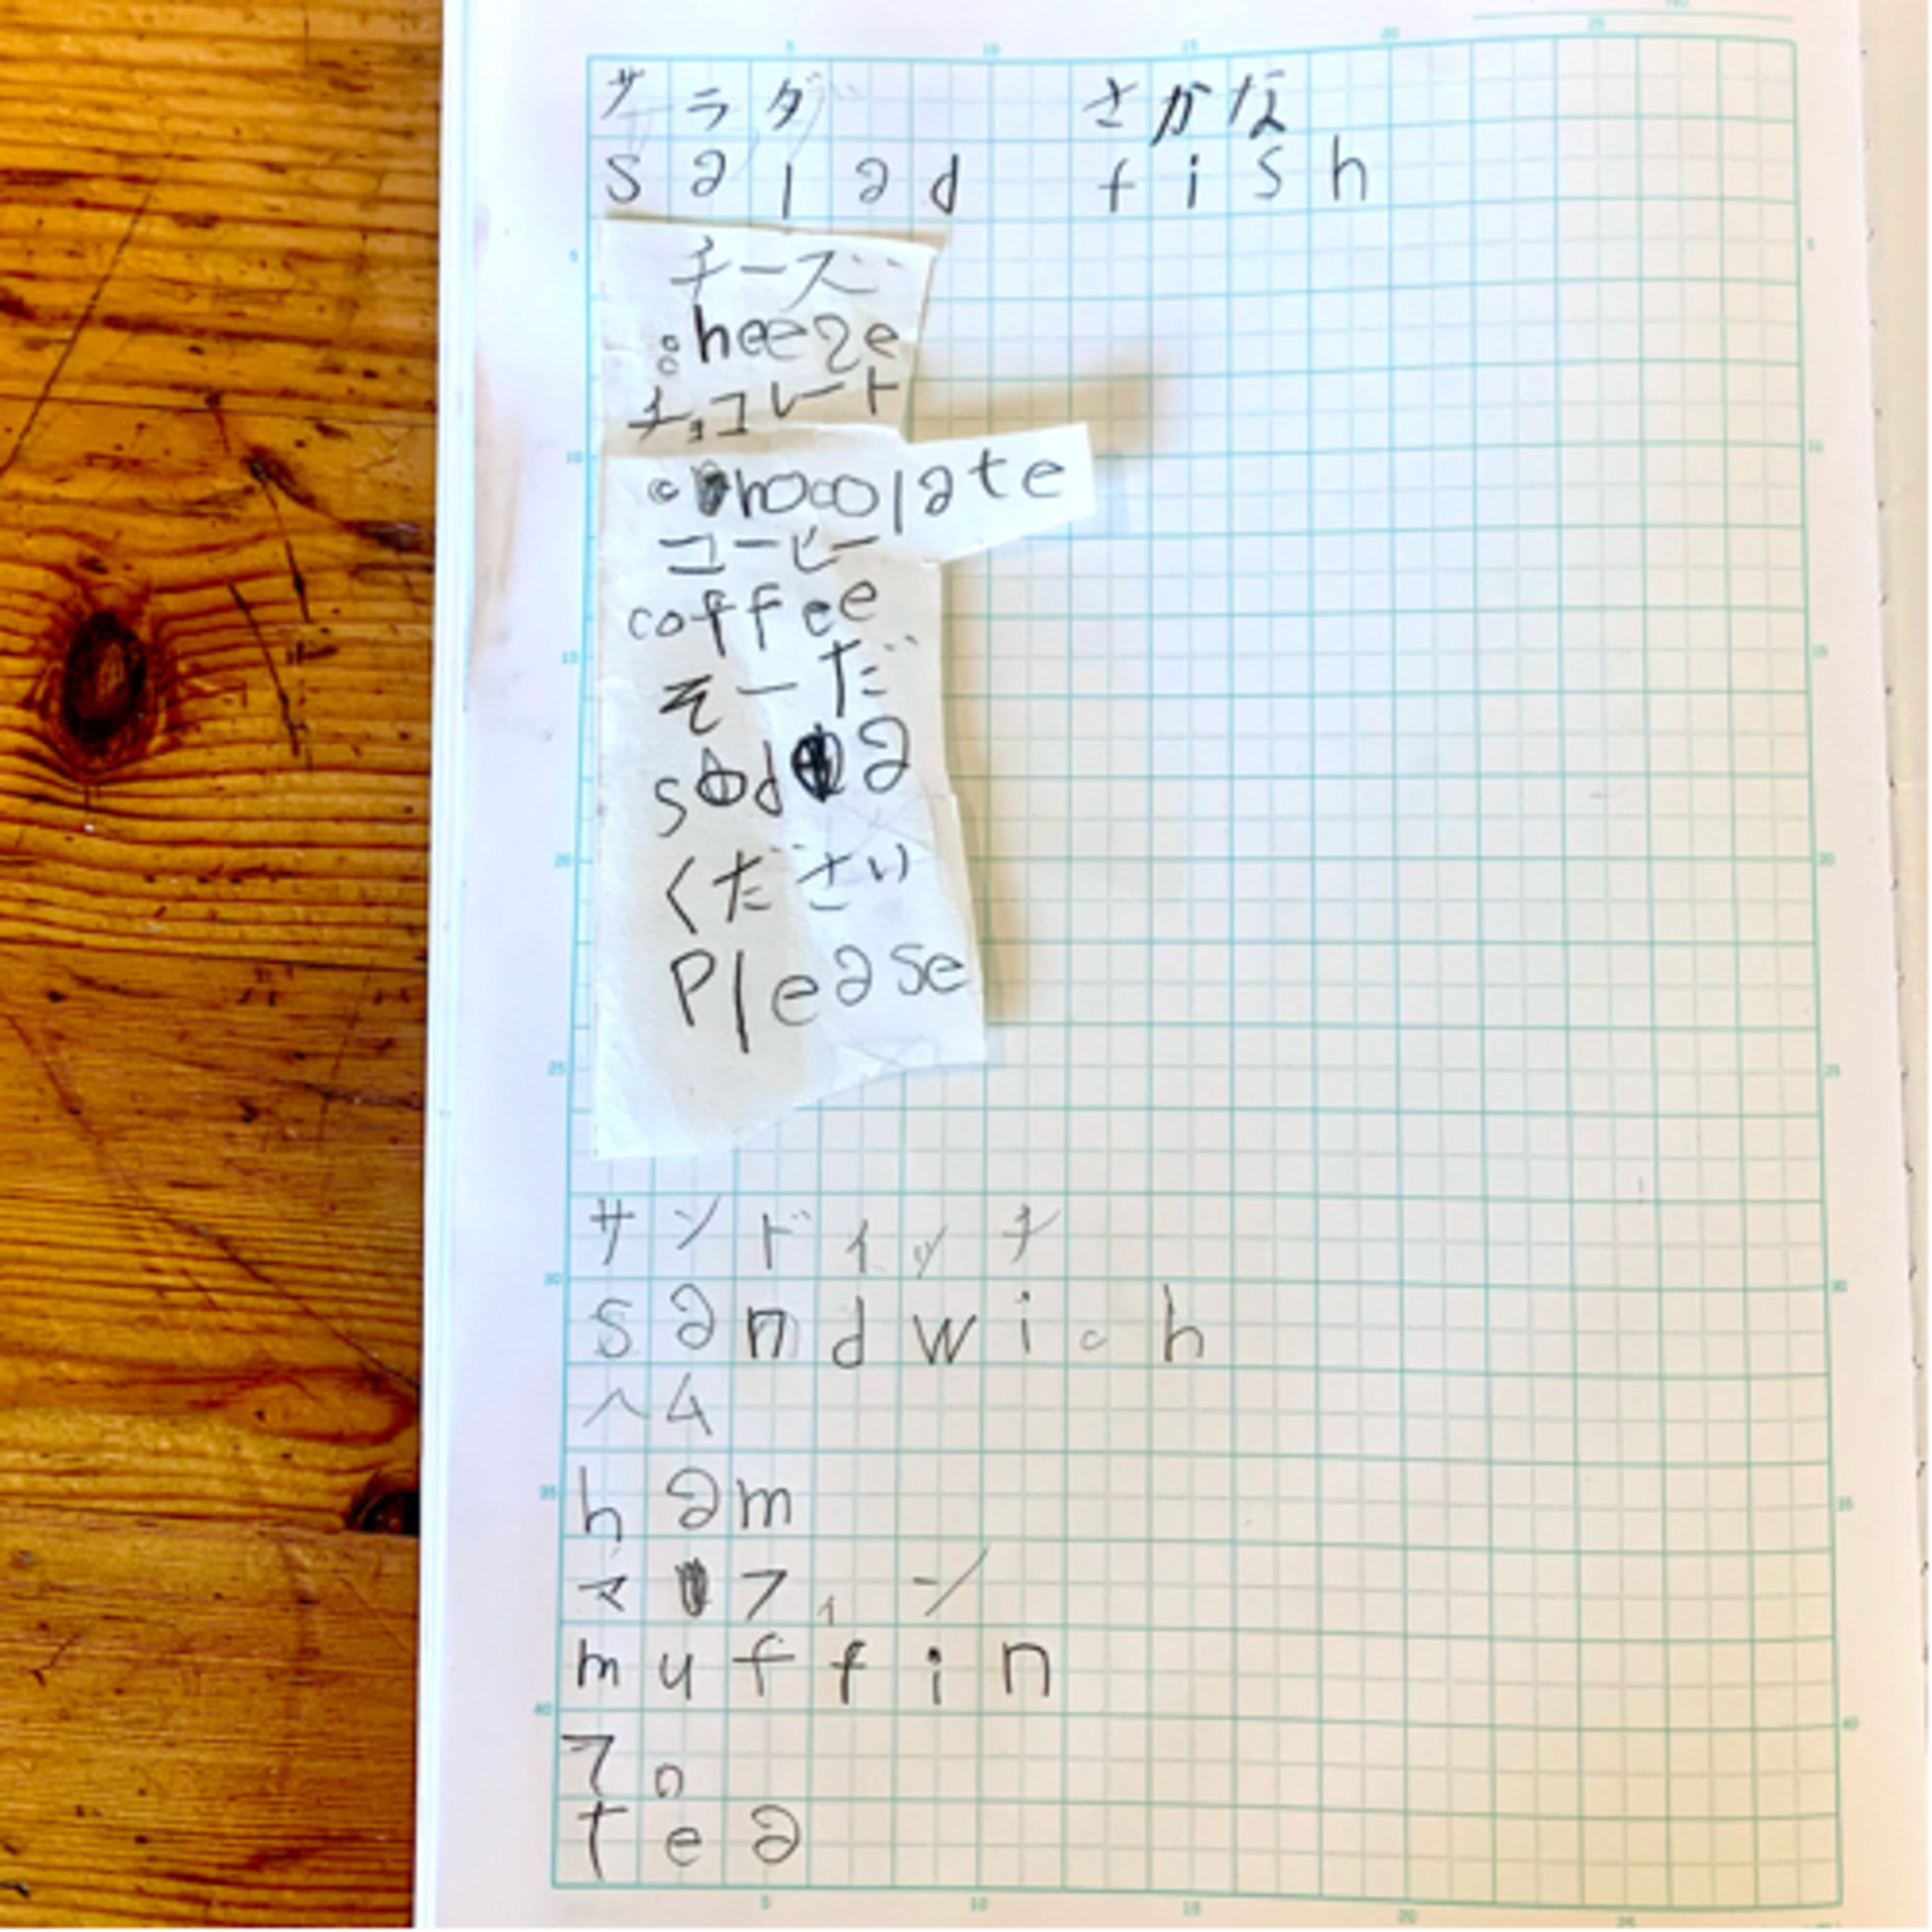 サラダ さかな
salad fish
チーズ
cheeze
チョコレート
chocolate
コーヒー
coffee
そーだ
soda
ください
Please
サンドイッチ
sandwich
ハム
ham
マフィン
muffin
tea